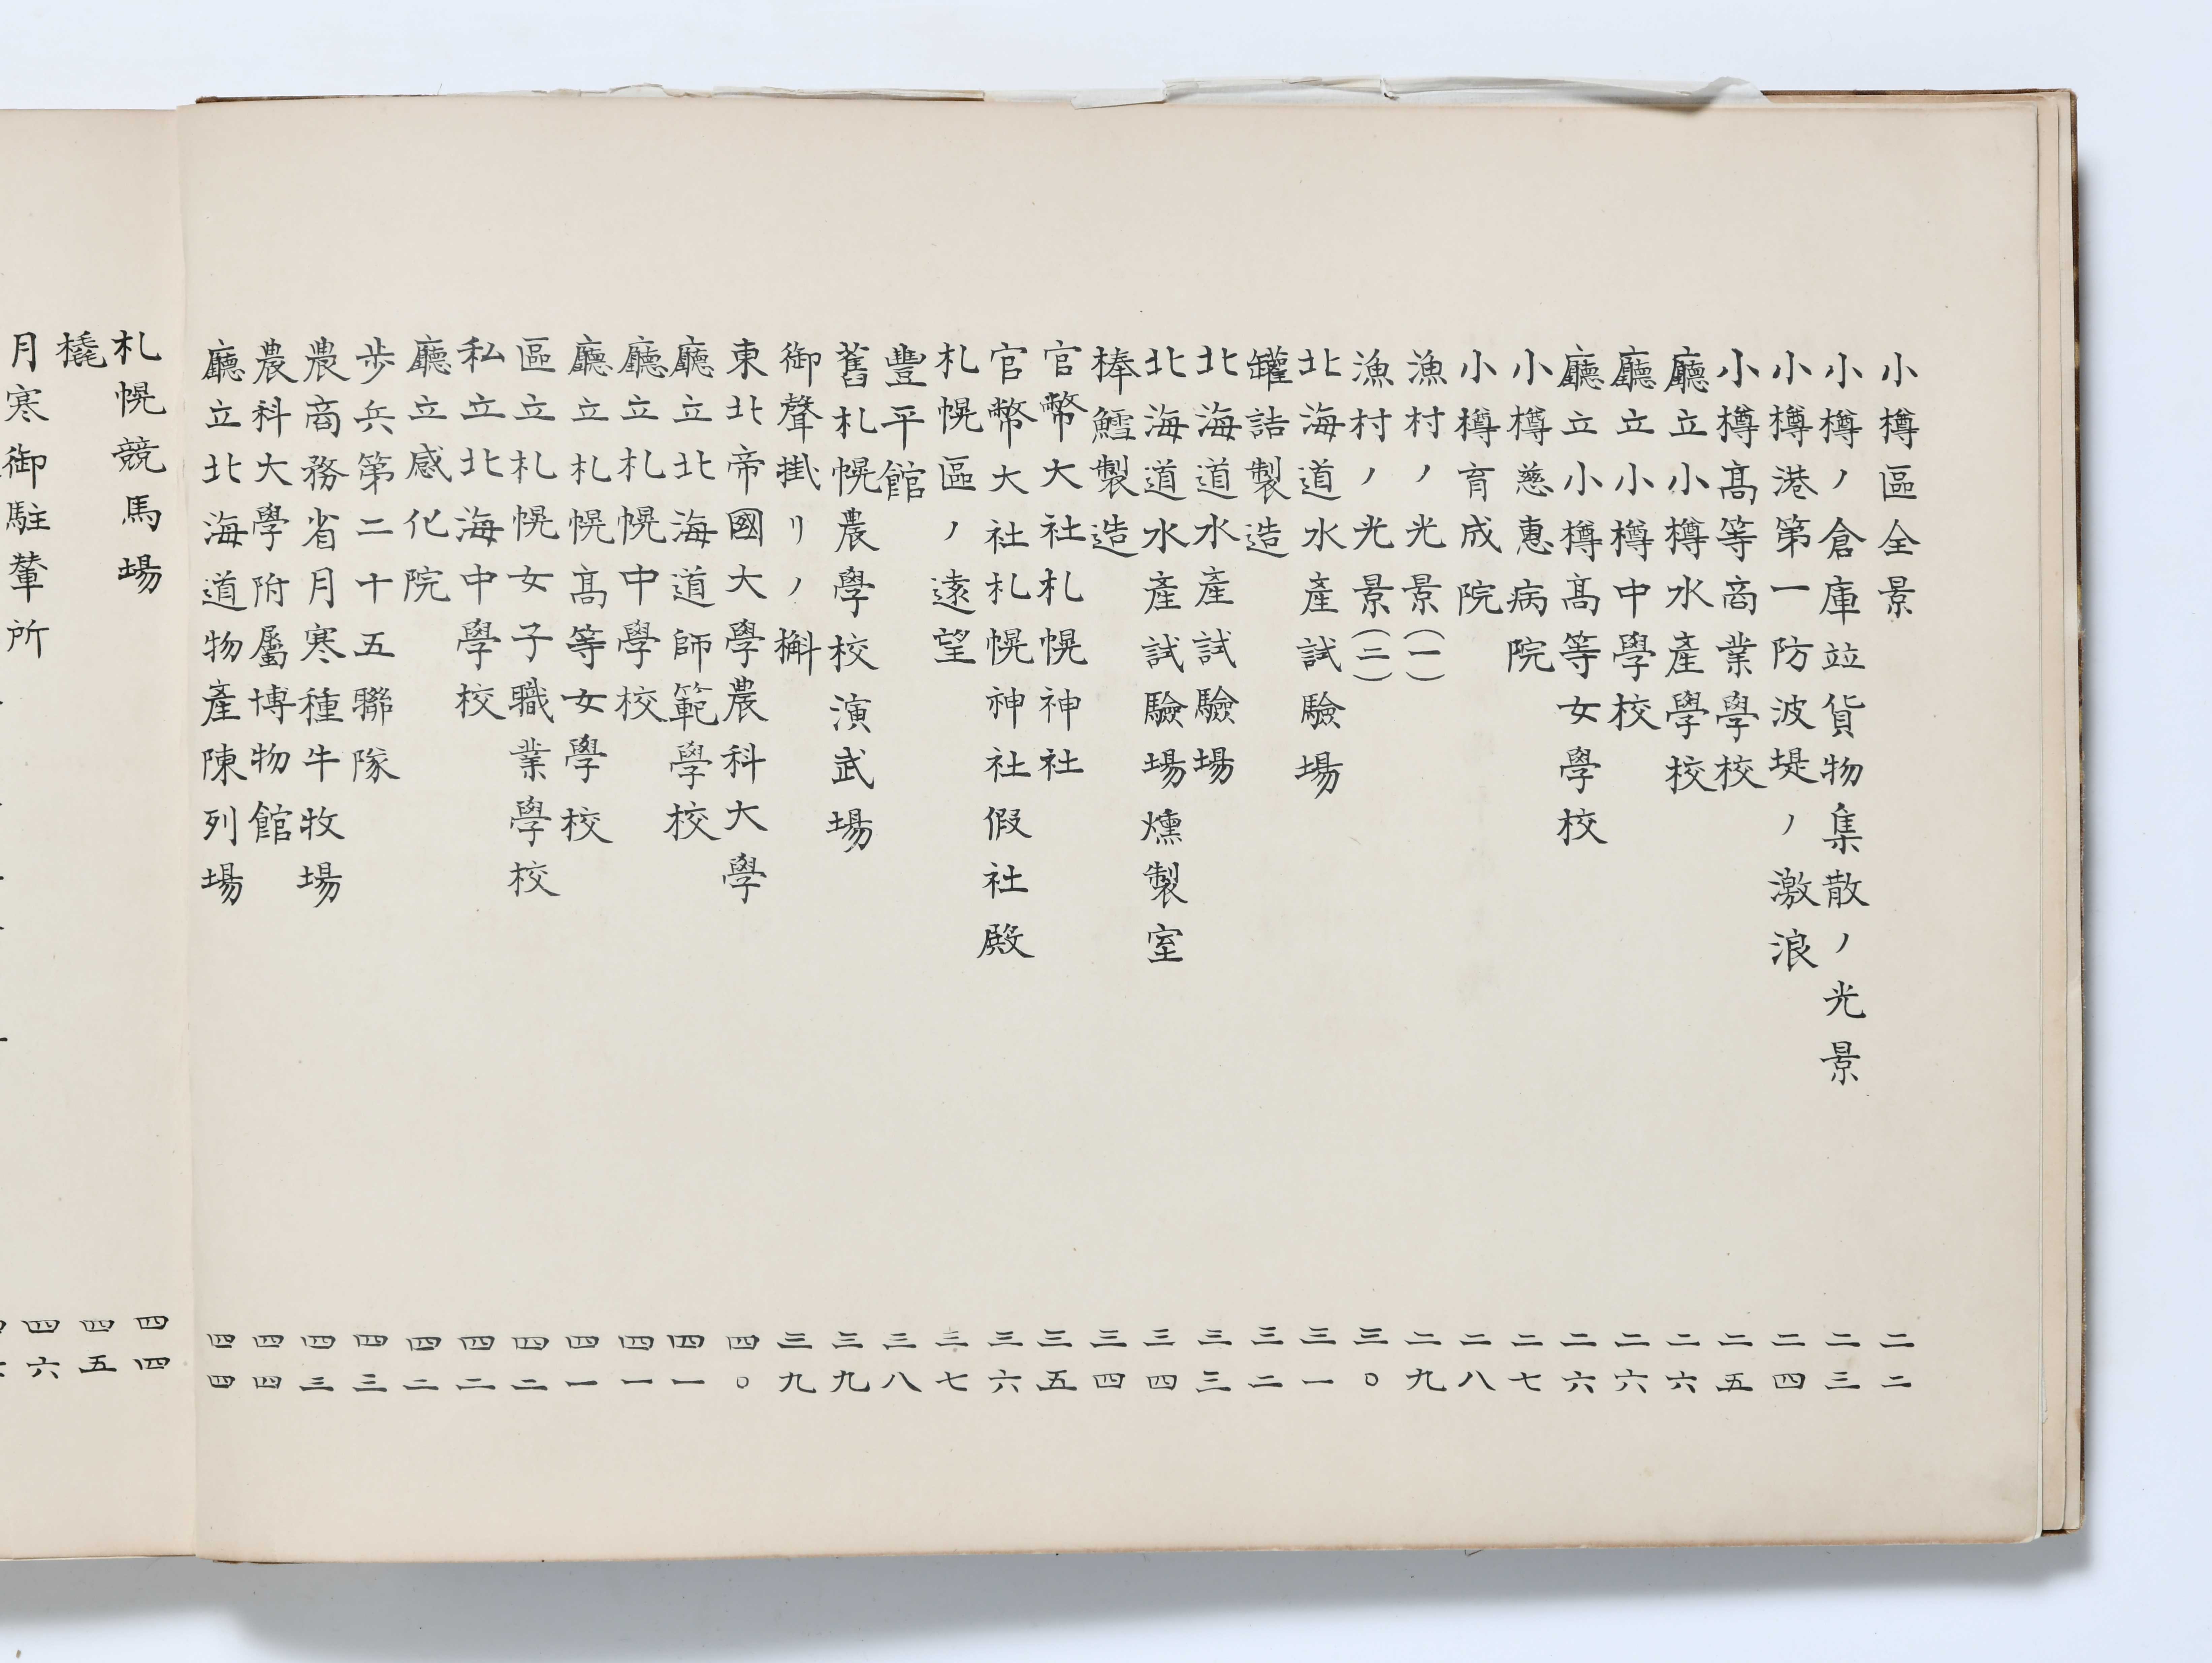 小樽區全景 二二
小樽ノ倉庫竝貨物集散ノ光景 二三
小樽港第一防波堤ノ激浪 二四
小樽髙等商業學校 二五
廳立小樽水產學校 二六
廳立小樽中學校 二六
廳立小樽髙等女學校 二六
小樽慈惠病院 二七
小樽育成院 二八
漁村ノ光景(一) 二九
漁村ノ光景(二) 三〇
北海道水產試驗場 三一
罐詰製造 三二
北海道水產試驗場 三三
北海道水產試驗場燻製室 三四
棒鱈製造 三四
官幣大社札幌神社 三五
官幣大社札幌神社假社殿 三六
札幌區ノ遠望 三七
豐平館 三八
舊札幌農學校演武場 三九
御聲掛リノ槲 三九
東北帝國大學農科大學 四〇
廳立北海道師範學校 四一
廳立札幌中學校 四一
廳立札幌髙等女學校 四一
區立札幌女子職業學校 四二
私立北海中學校 四二
廳立感化院 四二
步兵第二十五聯隊 四三
農商務省月寒種牛牧場 四三
農科大學附屬博物館 四四
廳立北海道物產陳列場 四四
札幌競馬場 四四
橇 四五
月寒御駐輦所 四六